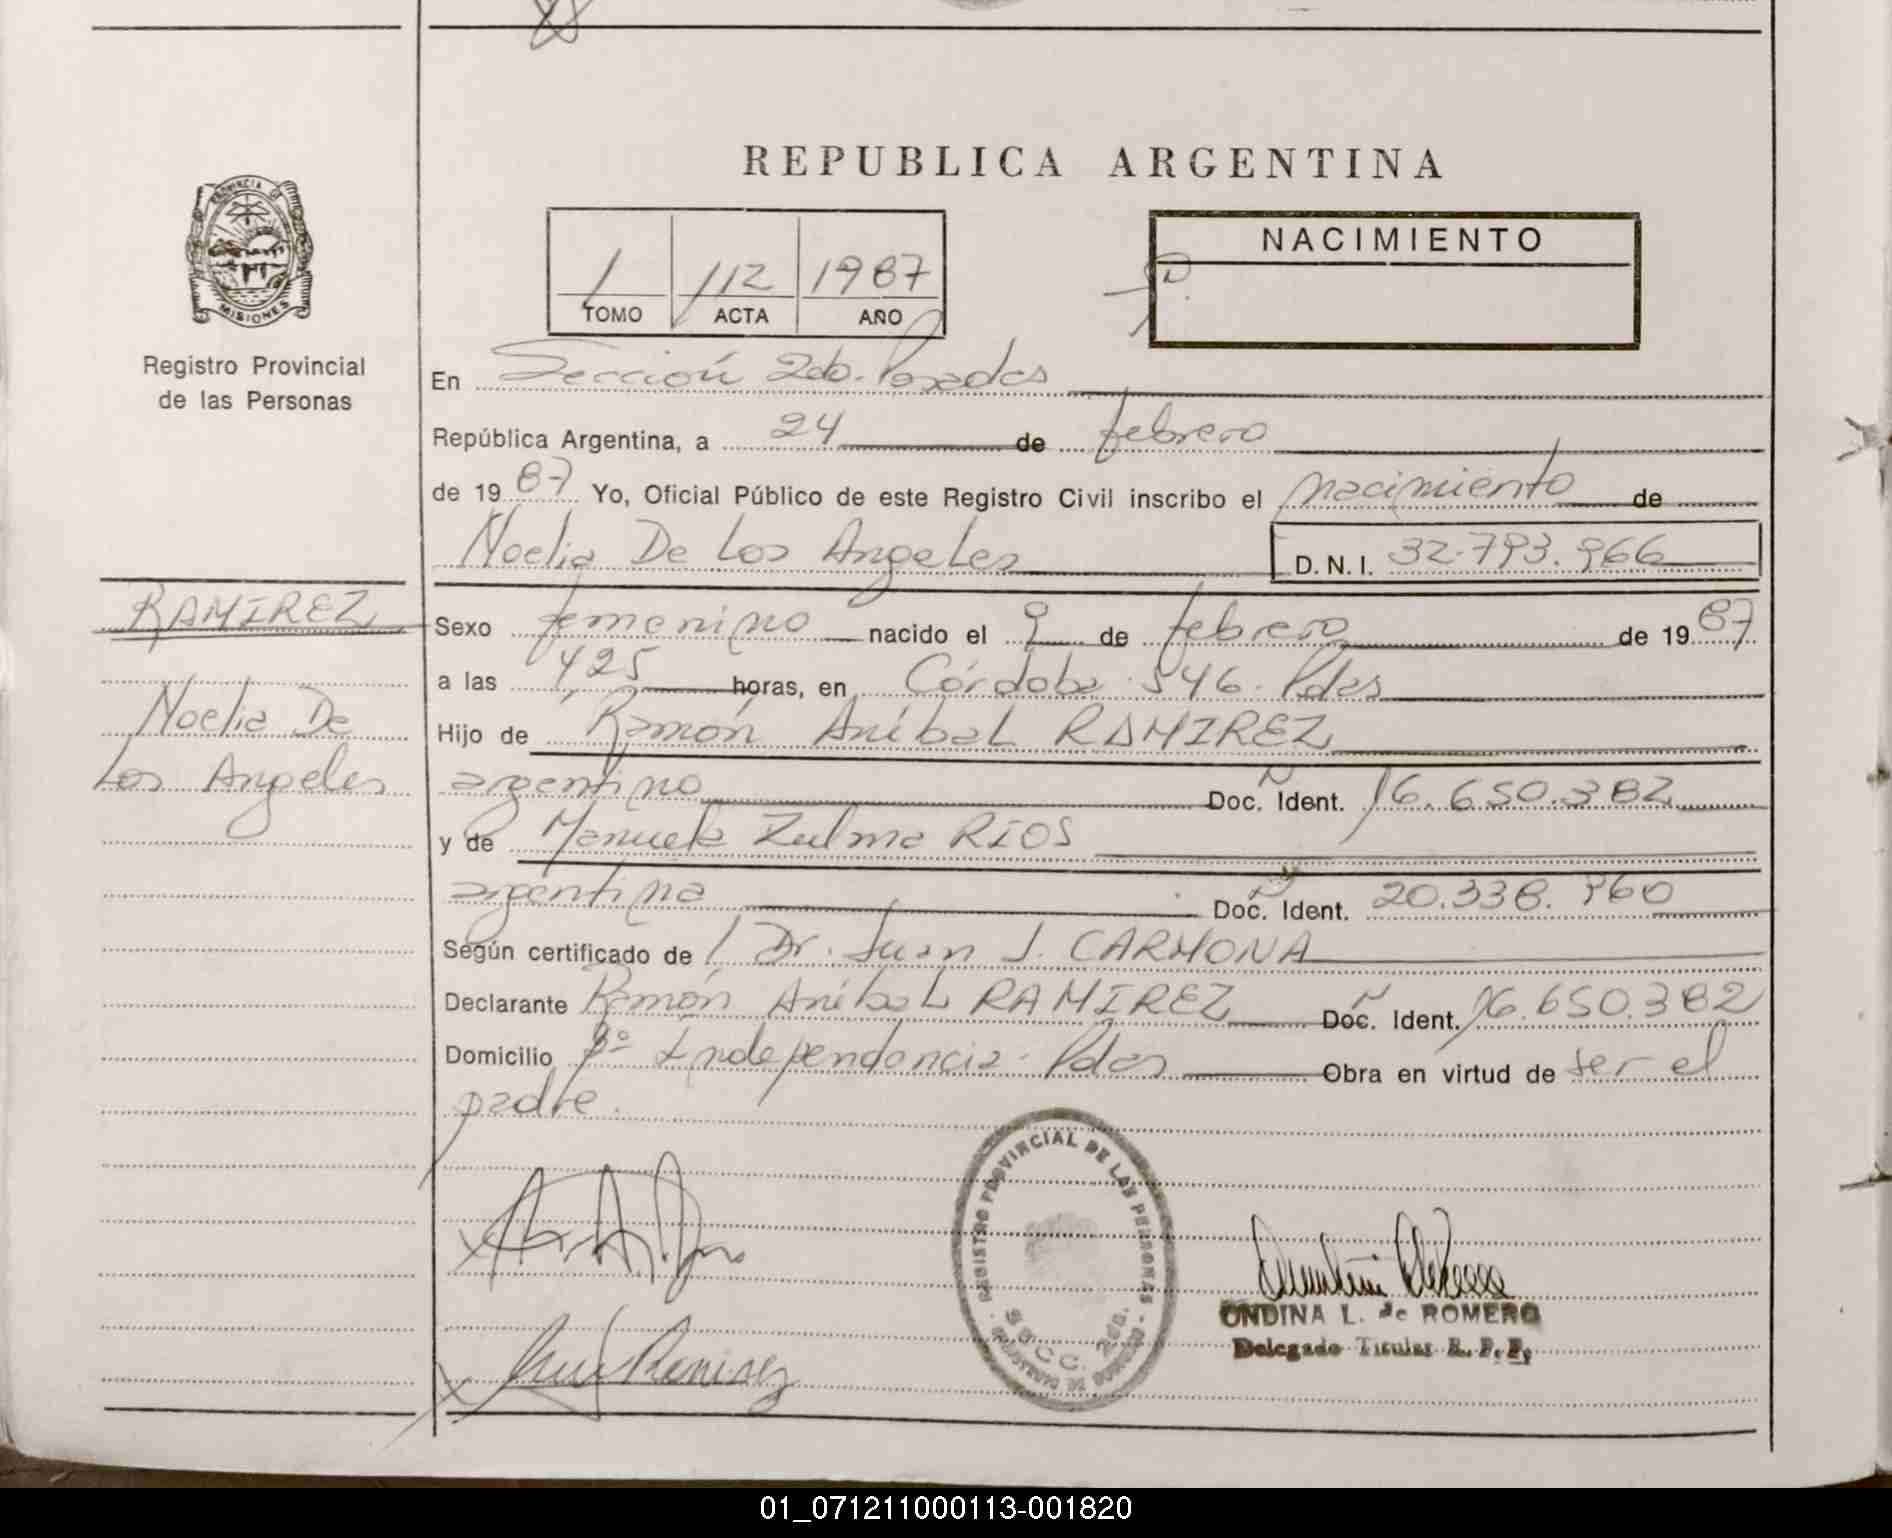 REPUBLICA ARGENTINA
PROVINCIA DE
MISIONES
Registro Provincial
de las Personas
1 112 1987
TOMO ACTA AÑO
NACIMIENTO
En Sección 2da. Posadas
República Argentina, a 24 de febrero
de 1987 Yo, Oficial Público de este Registro Civil inscribo el nacimiento de
Noelia De Los Angeles D.N.I. 32.793.966
RAMIREZ
Noelia De
Los Angeles
Sexo femenino nacido el 9 de febrero de 1987
a las 4,25 horas, en Córdoba 546. Pdas
Hijo de Ramón Aníbal RAMIREZ
argentino Doc. Ident. 16.650.382
y de Manuela Zulma RIOS
argentina Doc. Ident. 20.338.960
Según certificado de Dr. Juan J. CARMONA
Declarante Ramón Aníbal RAMIREZ Doc. Ident. 16.650.382
Domicilio Independencia. Pdas Obra en virtud de ser el
padre.
REGISTRO PROVINCIAL DE LAS PERSONAS
SECC. 2da.
ONDINA L. de ROMERO
Delegado Titular R. P. P.
01_071211000113-001820